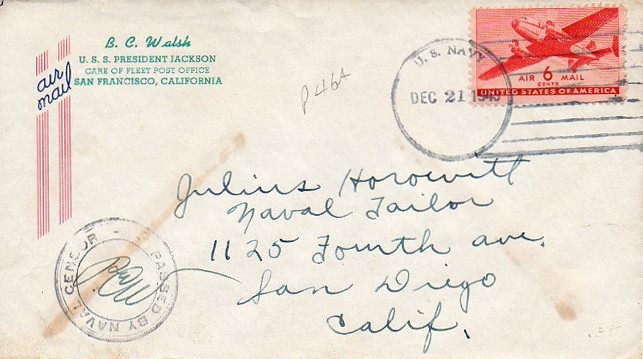 B. C. Walsh
U. S. S. PRESIDENT JACKSON
CARE OF FLEET POST OFFICE
SAN FRANCISCO, CALIFORNIA
air
mail
P46A
U. S. NAVY
DEC 21
AIR 6 MAIL
CENTS
UNITED STATES OF AMERICA
Julius Horowitt
Naval Tailor
1125 Fourth ave.
San Diego
Calif.
PASSED BY NAVAL CENSOR